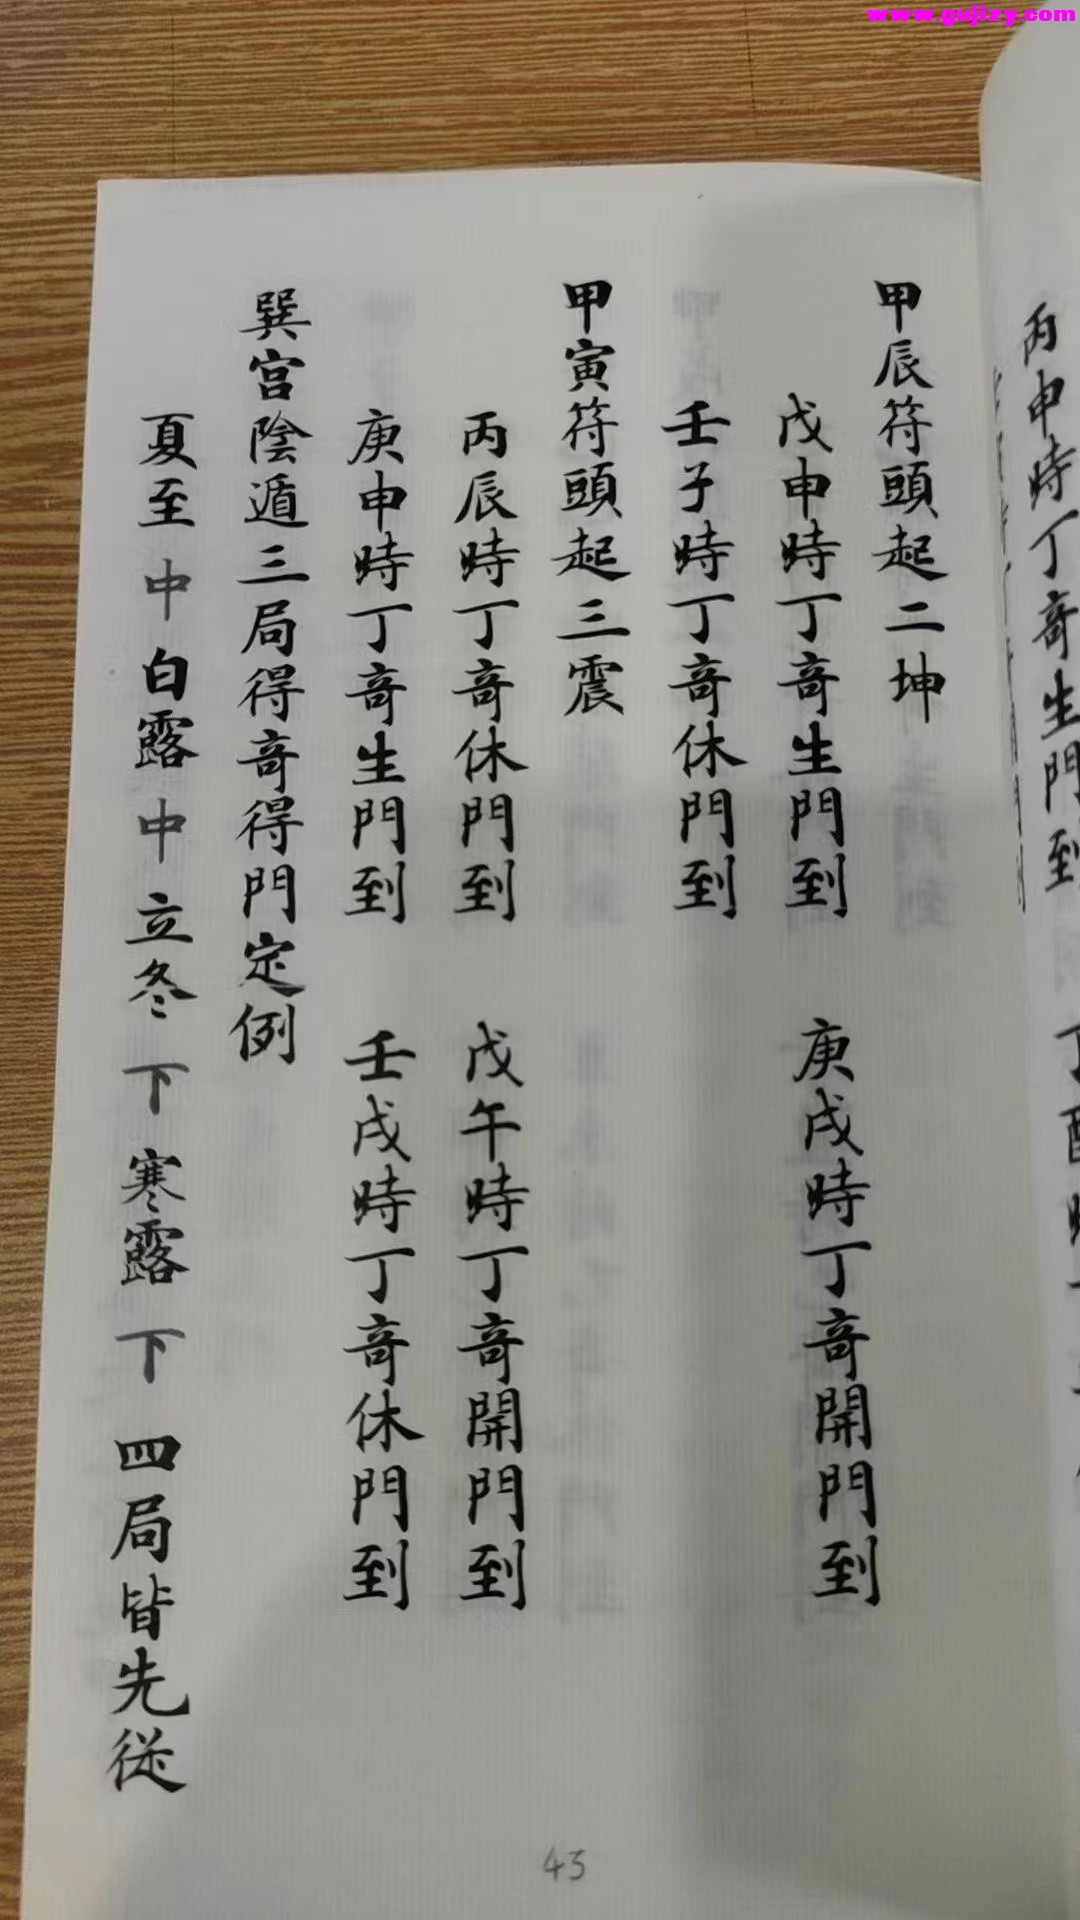 www.gujizy.com
丙申時丁竒生門到
甲辰符頭起二坤
戊申時丁竒生門到 庚戌時丁竒開門到
壬子時丁竒休門到
甲寅符頭起三震
丙辰時丁竒休門到 戊午時丁竒開門到
庚申時丁竒生門到 壬戌時丁竒休門到
巽宫陰遁三局得竒得門定例
夏至 中 白露 中 立冬 下 寒露 下 四局皆先従
43